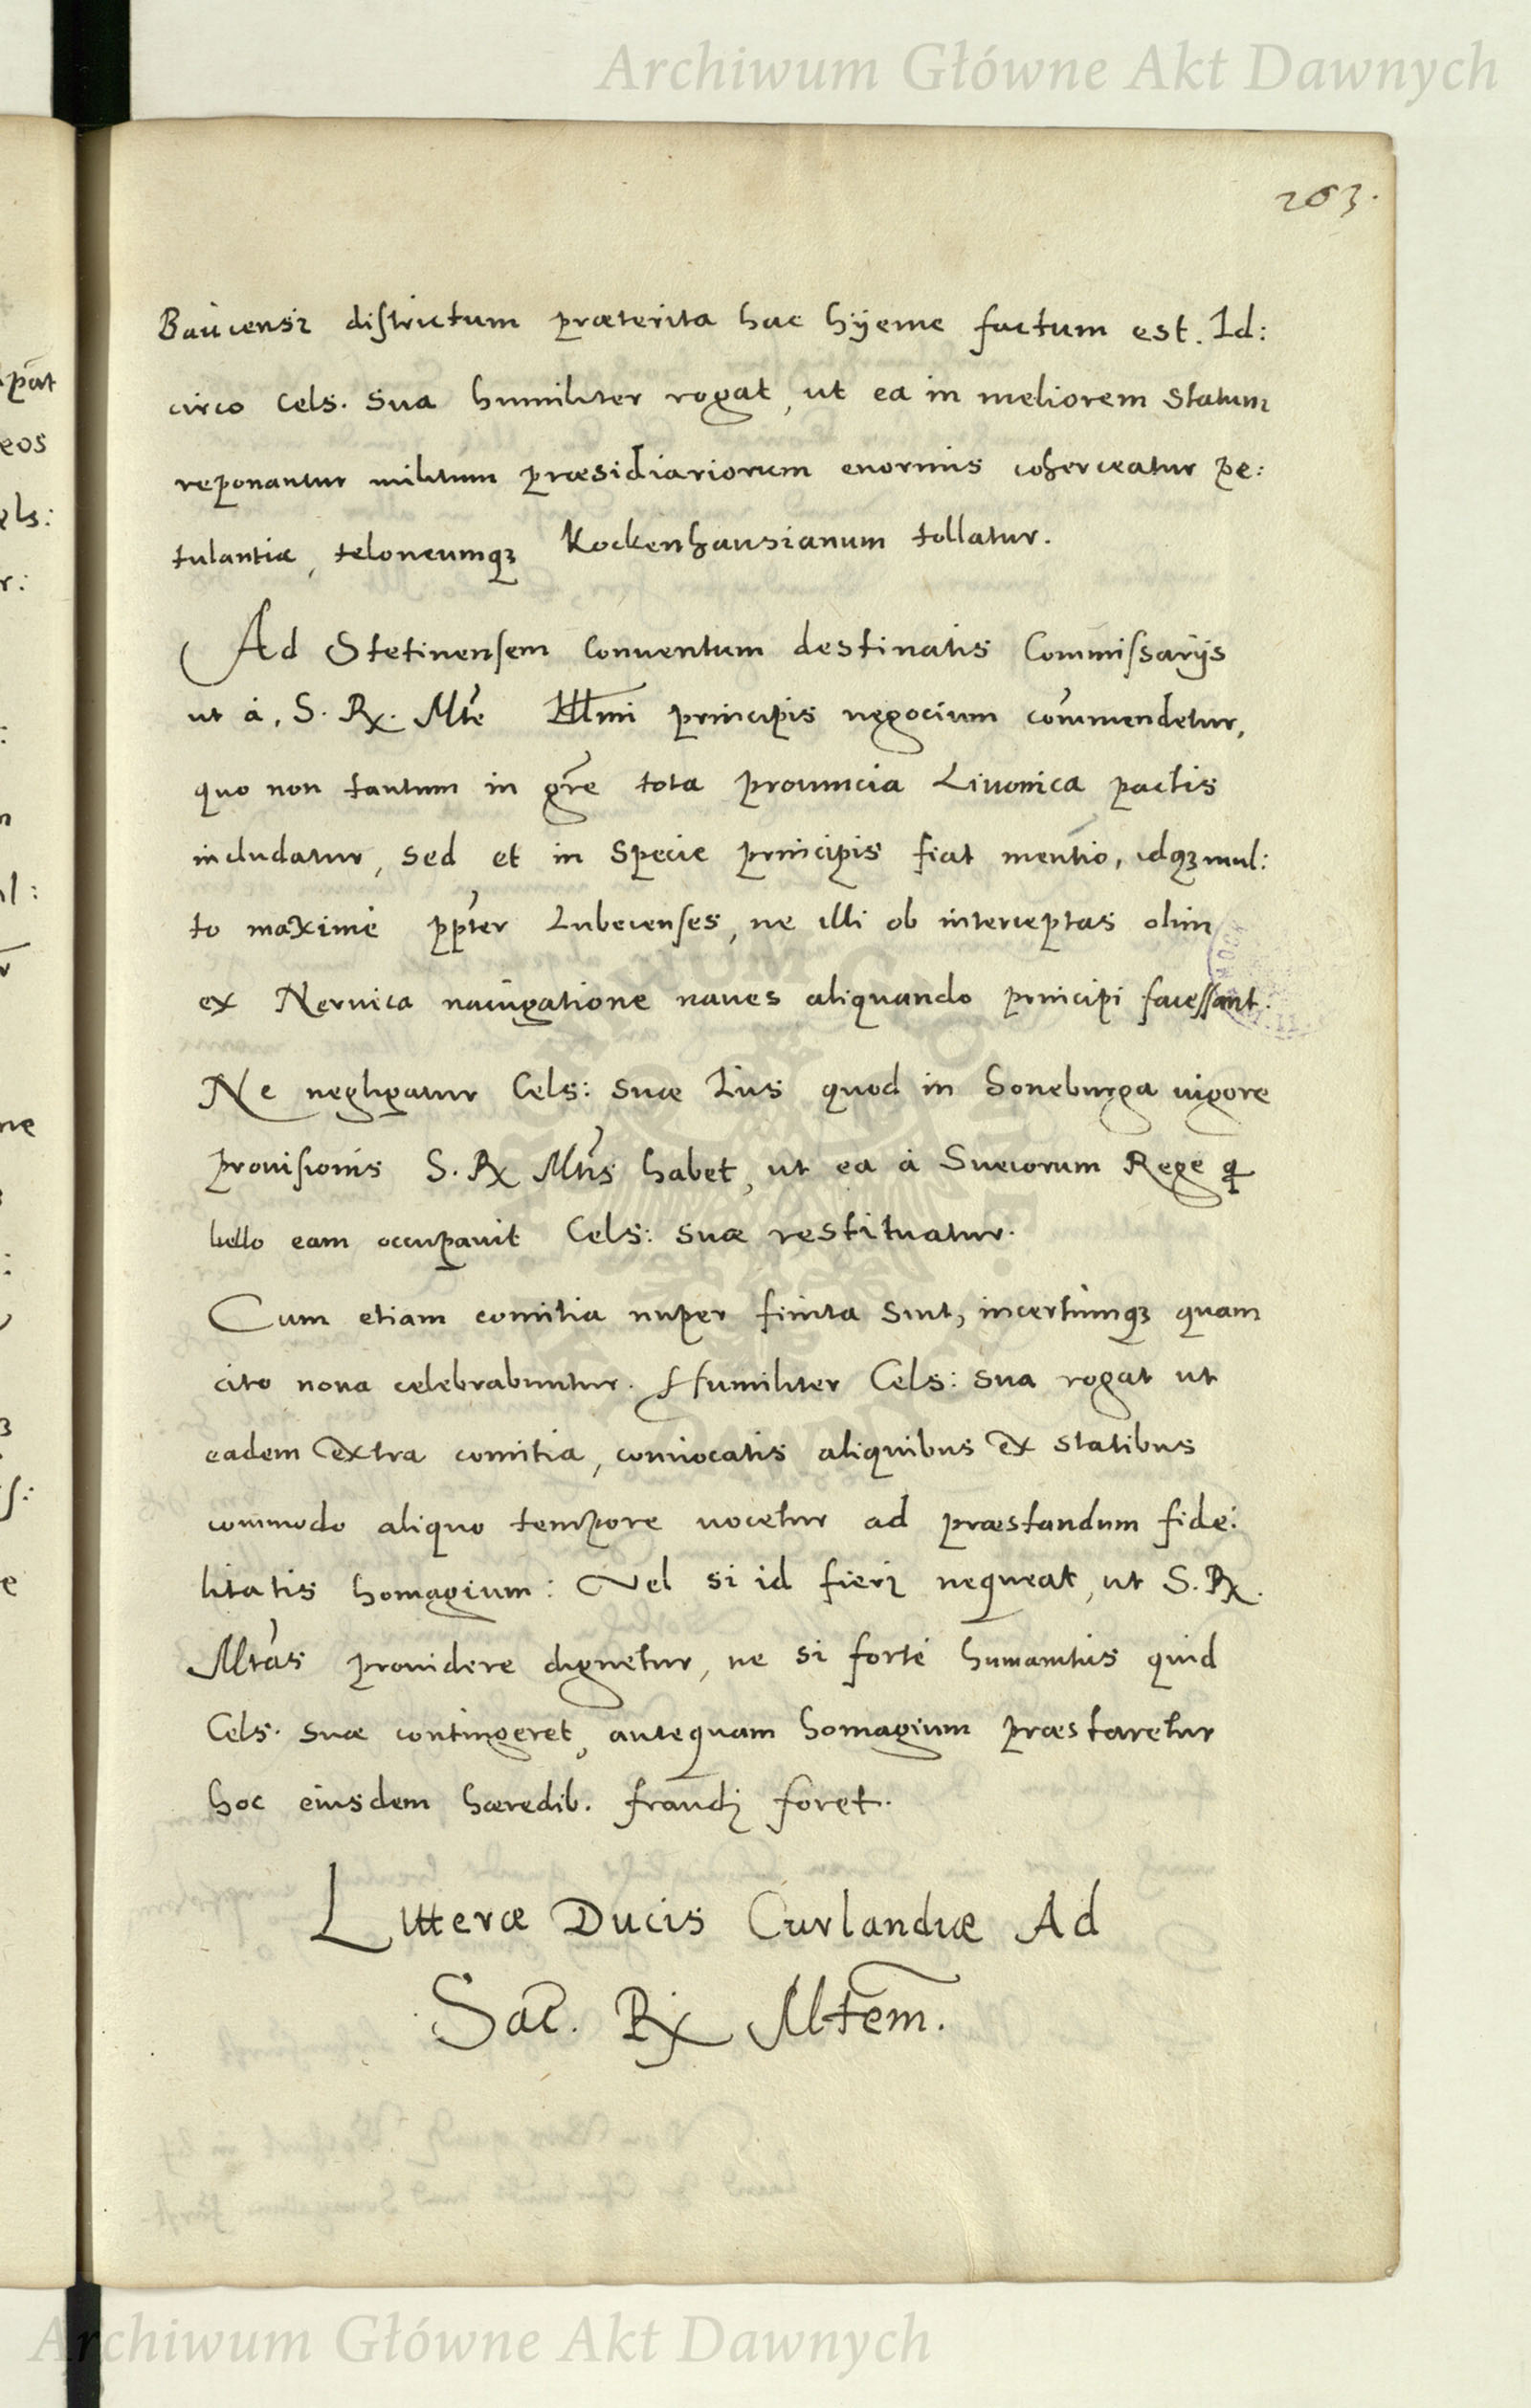 Archiwum Główne Akt Dawnych
263.
Baucensi districtum præterita hac hÿeme factum est. Id:
circo Cels. Sua humiliter rogat, ut ea in meliorem Statum
reponantur militum præsidiariorum enormis coherceatur pe:
tulantia, teloneumqꝫ Kockenhausianum tollatur.
Ad Stetinensem Conventum destinatis Commissarijs
ut à, S. R. Mte Illmi principis negocium commendetur,
quo non tantum in gre tota provincia Livonica pactis
includatur, sed et in Specie principis fiat mentio, idqꝫ mul:
to maximè ppter Lubecenses, ne illi ob interceptas olim
ex Nervica navigatione naves aliquando principi facessant.
Ne negligatur Cels: Suæ Ius quod in Soneburga vigore
provisionis S. R. Mtis habet, ut ea à Suecorum Rege q
bello eam occupavit Cels: suæ restituatur.
Cum etiam comitia nuper finita Sint, incertumqꝫ quam
cito nova celebrabuntur. Humiliter Cels: Sua rogat ut
eadem extra comitia, convocatis aliquibus ex Statibus
commodo aliquo tempore vocetur ad præstandum fide:
litatis homagium: Vel si id fieri nequeat, ut S. R.
Mtas providere dignetur, ne si fortè humanitùs quid
Cels. Suæ contingeret, antequam homagium præstaretur
hoc eiusdem hæredib. fraudi foret.
Litteræ Ducis Curlandiæ Ad
Sac. R. Mtem.
pat
eos
els:
r:
ne
e
Archiwum Główne Akt Dawnych